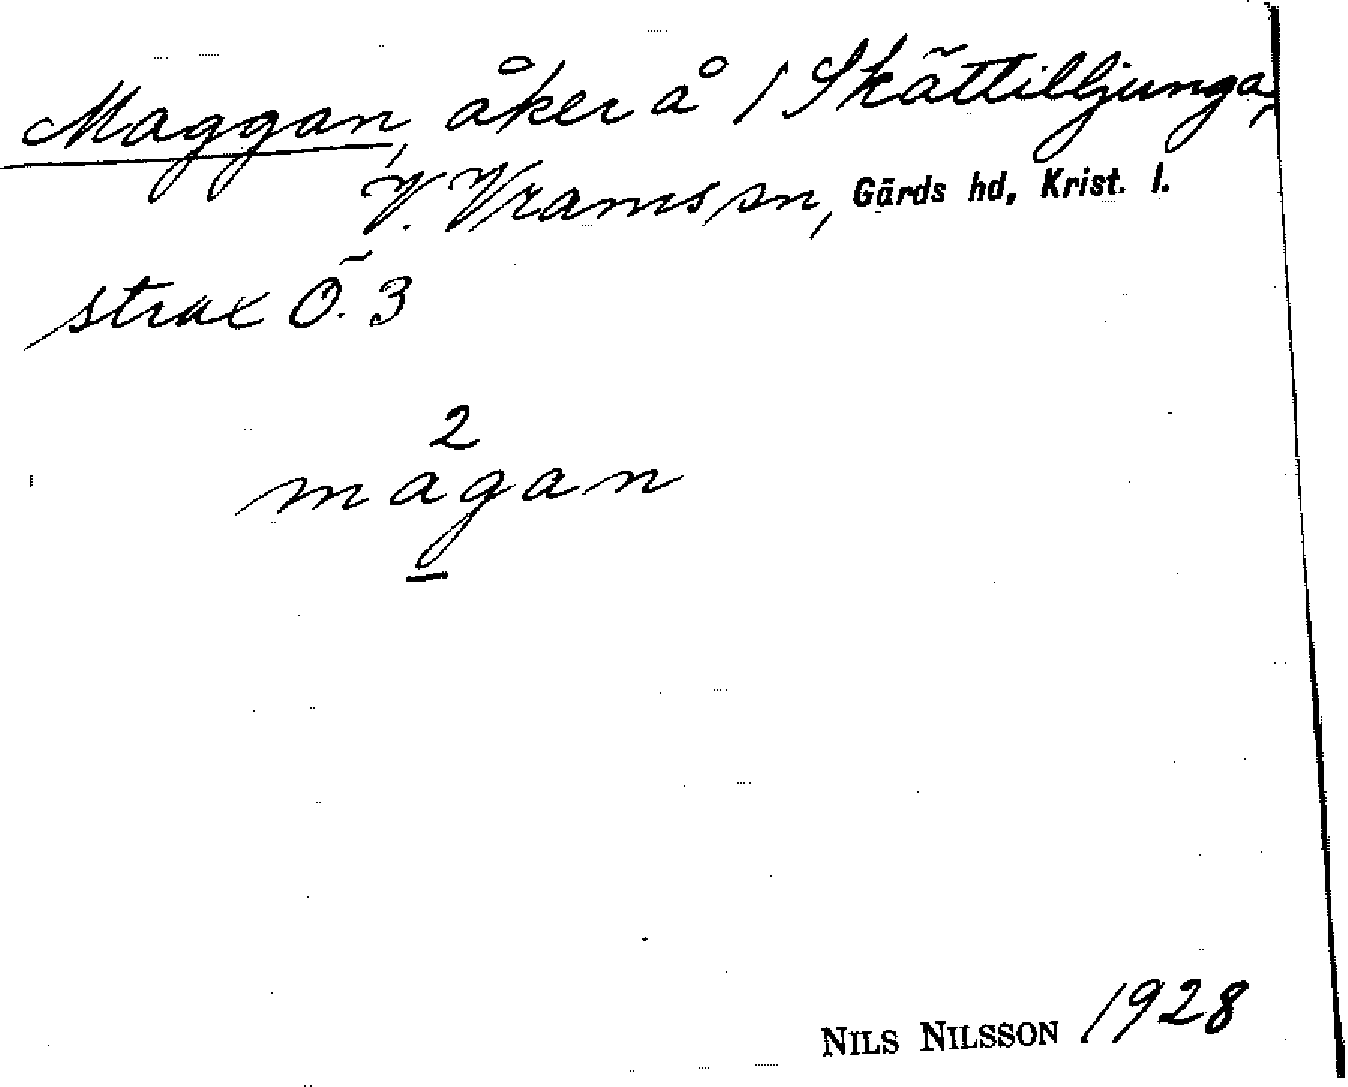 Maggan, åker å 1 Skättilljunga,
V. Vrams sn, Gärds hd, Krist. l.
strax Ö. 3
2
magan
NILS NILSSON 1928